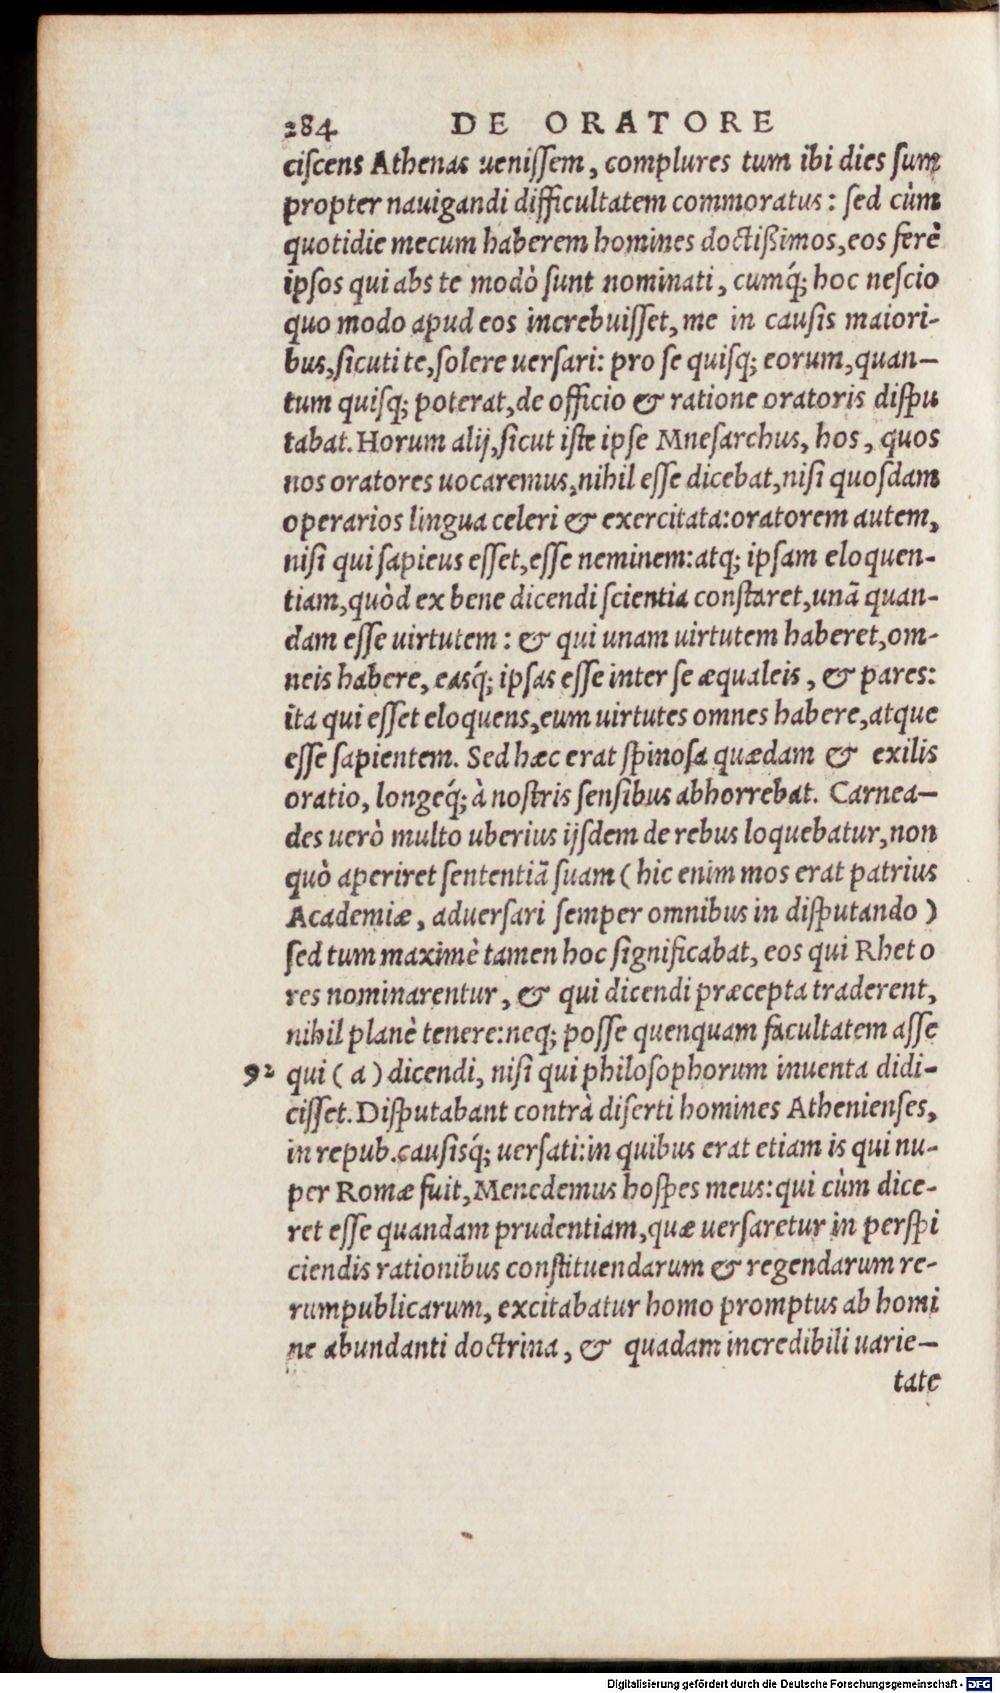 284 DE ORATORE
ciſcens Athenas ueniſſem, complures tum ibi dies ſum
propter nauigandi difficultatem commoratus: ſed cùm
quotidie mecum haberem homines doctiſſimos, eos ferè
ipſos qui abs te modò ſunt nominati, cumq́; hoc neſcio
quo modo apud eos increbuiſſet, me in cauſis maiori-
bus, ſicuti te, ſolere uerſari: pro ſe quiſq; eorum, quan-
tum quiſq; poterat, de officio & ratione oratoris diſpu
tabat. Horum alij, ſicut iſte ipſe Mneſarchus, hos, quos
nos oratores uocaremus, nihil eſſe dicebat, niſi quoſdam
operarios lingua celeri & exercitata: oratorem autem,
niſi qui ſapieus eſſet, eſſe neminem: atq; ipſam eloquen-
tiam, quòd ex bene dicendi ſcientia conſtaret, unã quan-
dam eſſe uirtutem: & qui unam uirtutem haberet, om-
neis habere, easq́; ipſas eſſe inter ſe æqualeis, & pares:
ita qui eſſet eloquens, eum uirtutes omnes habere, atque
eſſe ſapientem. Sed hæc erat ſpinoſa quædam & exilis
oratio, longeq́; à noſtris ſenſibus abhorrebat. Carnea-
des uerò multo uberius ijſdem de rebus loquebatur, non
quò aperiret ſententiã ſuam (hic enim mos erat patrius
Academiæ, aduerſari ſemper omnibus in diſputando)
ſed tum maximè tamen hoc ſignificabat, eos qui Rheto
res nominarentur, & qui dicendi præcepta traderent,
nihil planè tenere: neq; poſſe quenquam facultatem aſſe
92 qui (a) dicendi, niſi qui philoſophorum inuenta didi-
ciſſet. Diſputabant contrà diſerti homines Athenienſes,
in repub. cauſisq́; uerſati: in quibus erat etiam is qui nu-
per Romæ fuit, Menedemus hoſpes meus: qui cùm dice-
ret eſſe quandam prudentiam, quæ uerſaretur in perſpi
ciendis rationibus conſtituendarum & regendarum re-
rumpublicarum, excitabatur homo promptus ab homi
ne abundanti doctrina, & quadam incredibili uarie-
tate
Digitalisierung gefördert durch die Deutsche Forschungsgemeinschaft - DFG